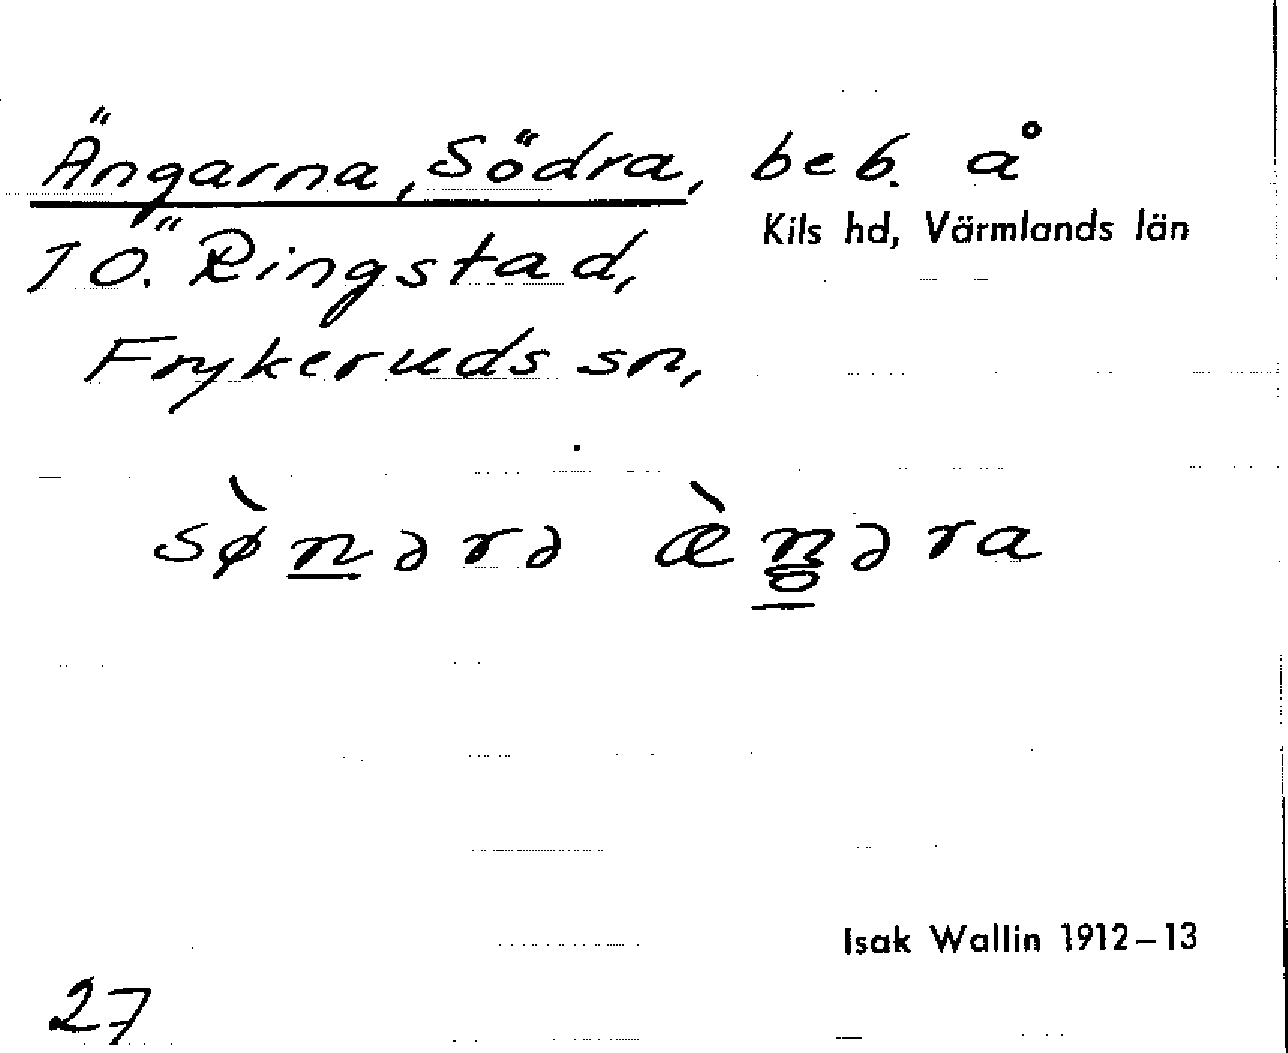 Ängarna, Södra, beb. å
Kils hd, Värmlands län
1 Ö. Ringstad,
Frykeruds sn,
sø̀nərə æ̀ŋəra
Isak Wallin 1912–13
27